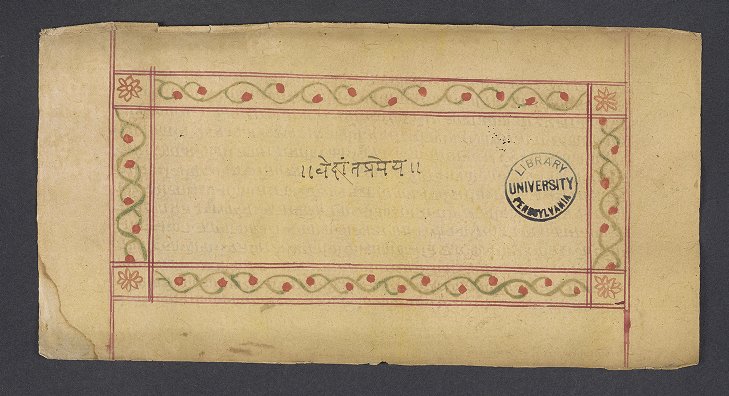 ।।वेदांतप्रमेय।।
LIBRARY
UNIVERSITY
PENNSYLVANIA